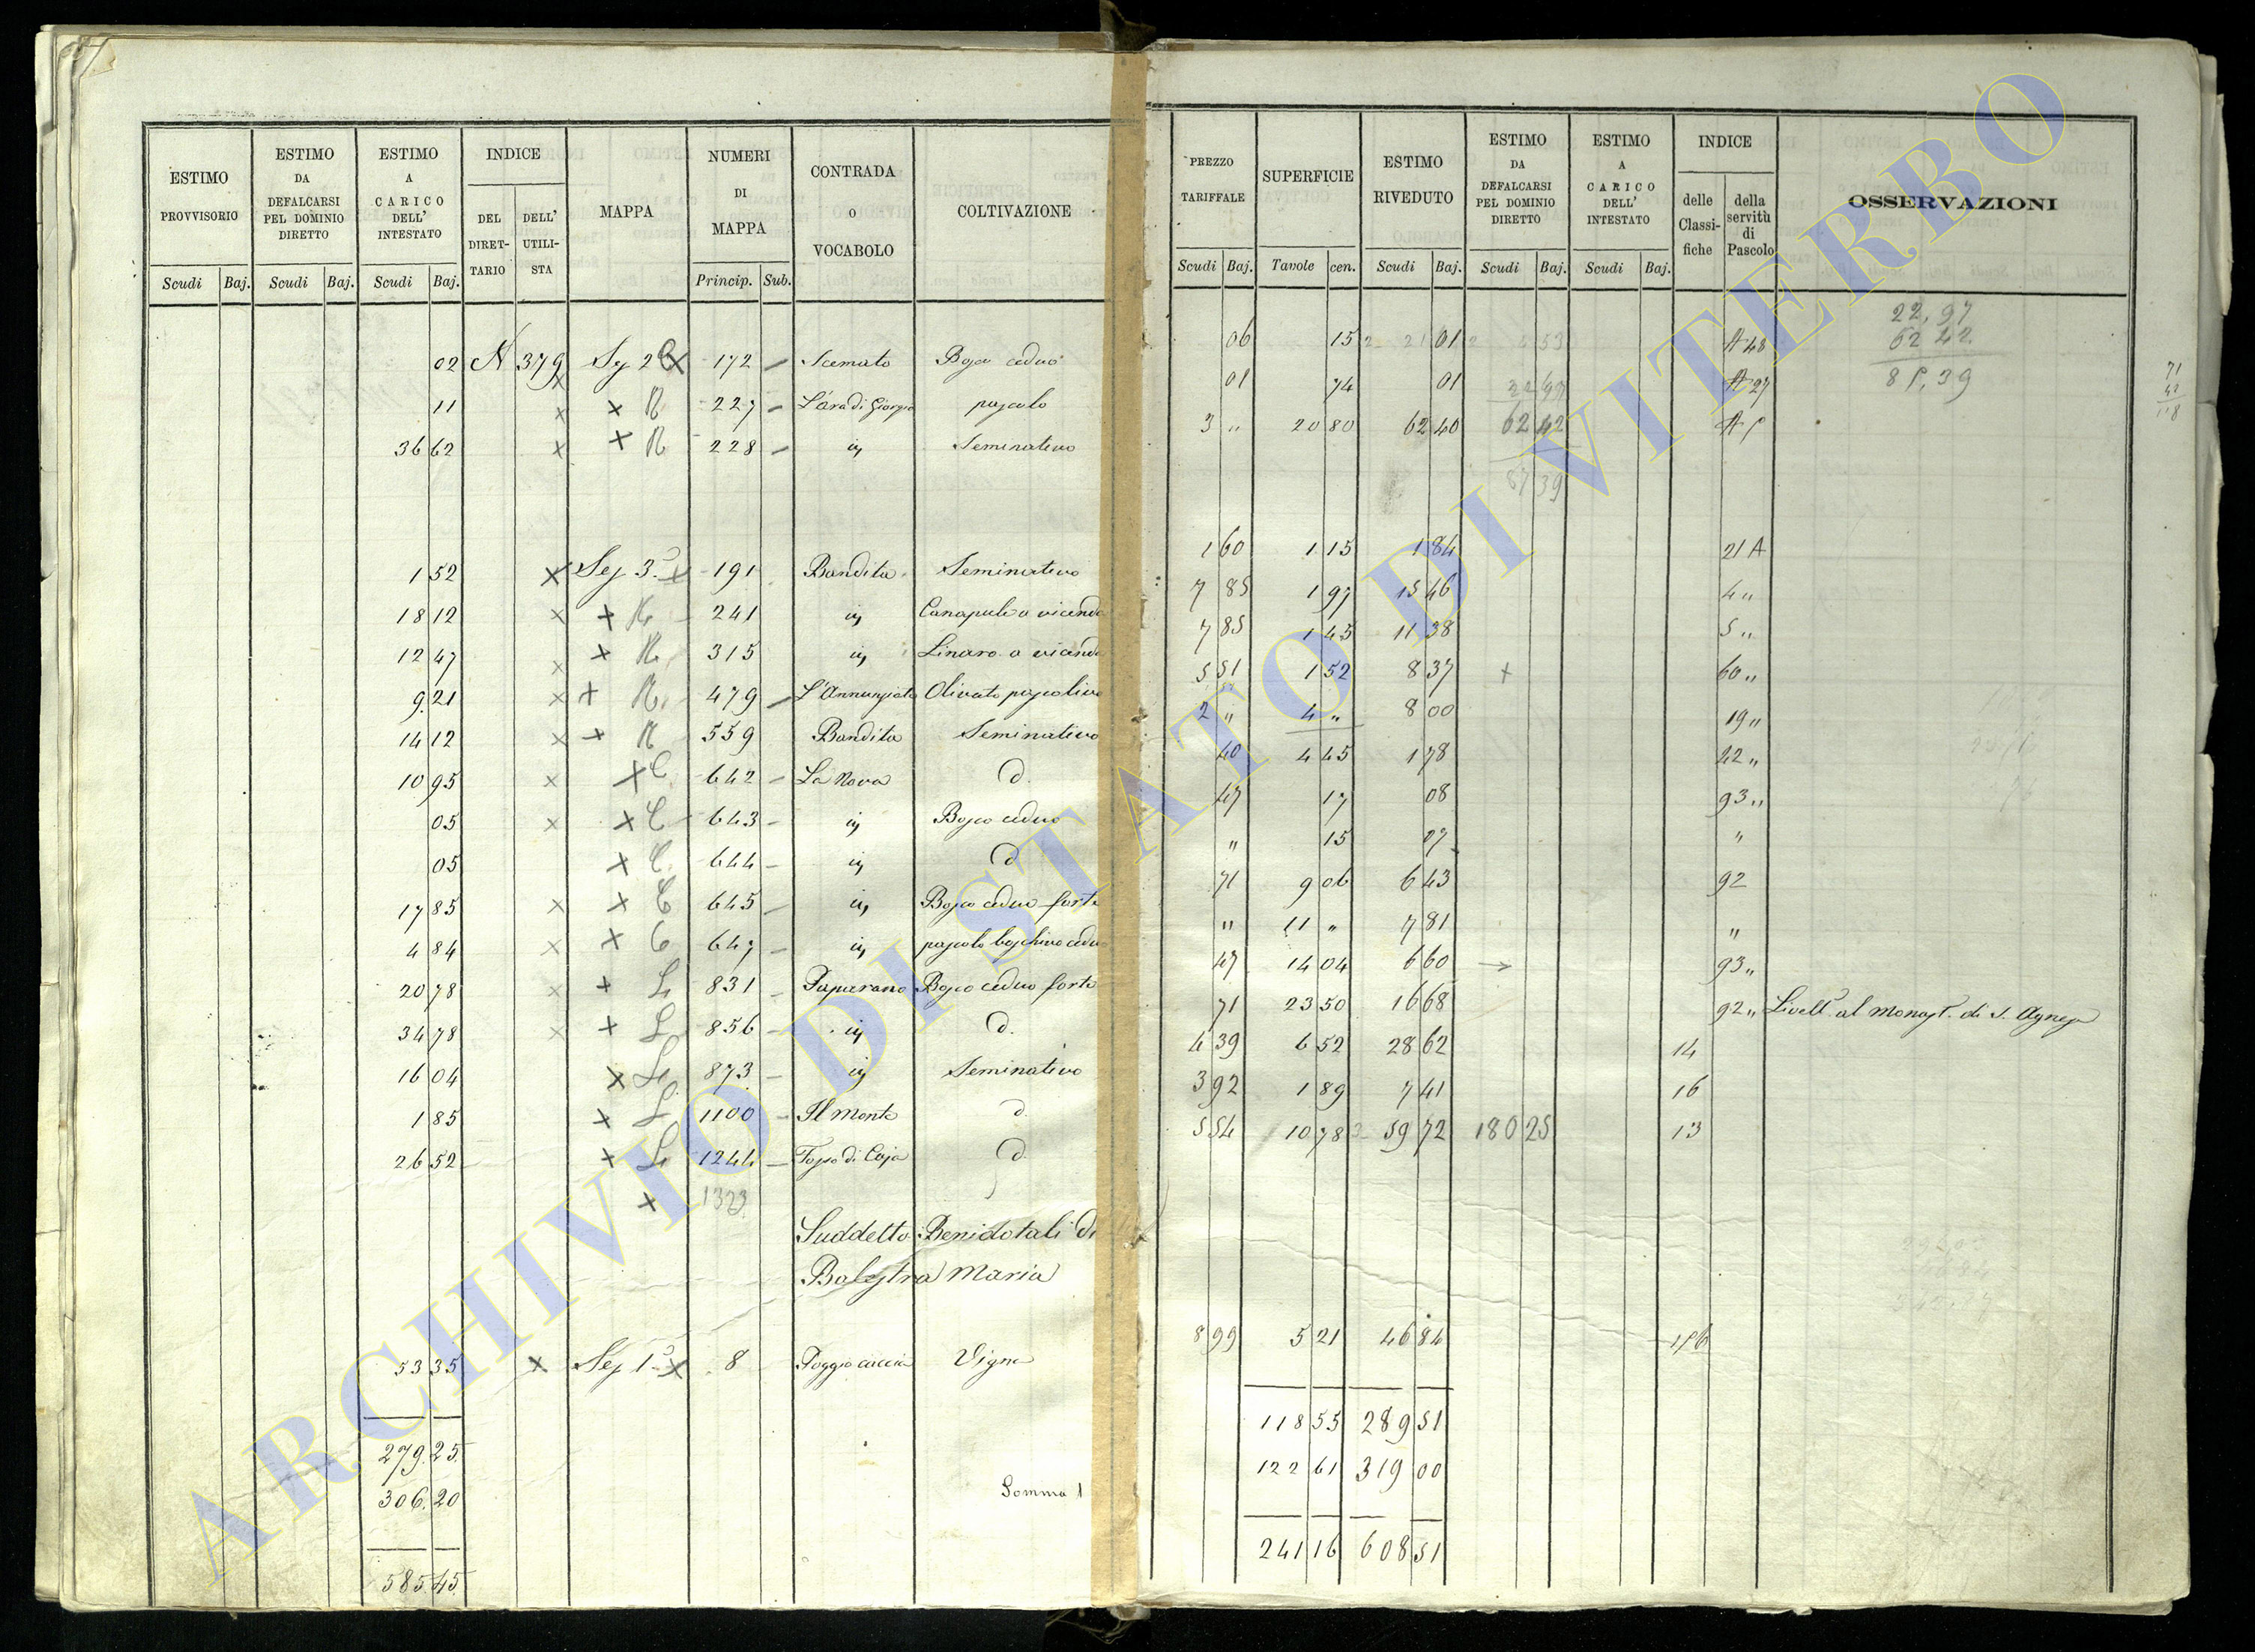 ESTIMO PROVVISORIO
ESTIMO DA DEFALCARSI PEL DOMINIO DIRETTO
ESTIMO A CARICO DELL' INTESTATO
INDICE
DEL DIRET-TARIO
DELL' UTILI-STA
MAPPA
NUMERI DI MAPPA
CONTRADA o VOCABOLO
COLTIVAZIONE
Scudi Baj. Scudi Baj. Scudi Baj. Princip. Sub.
PREZZO TARIFFALE
SUPERFICIE
ESTIMO RIVEDUTO
ESTIMO DA DEFALCARSI PEL DOMINIO DIRETTO
ESTIMO A CARICO DELL' INTESTATO
INDICE
delle Classi-fiche
della servitù di Pascolo
OSSERVAZIONI
Scudi Baj. Tavole cen. Scudi Baj. Scudi Baj. Scudi Baj.
02 N 379 172 Scemato Bosco ceduo
11 227 L'ara di Giorgio pascolo
36 62 228 Seminativo
1 52 Sez 3 191 Bandita Seminativo
18 12 241 Canapule a vicenda
12 47 315 Linaro a vicenda
9.21 479 L'Annunziata Olivato pascolivo
14 12 559 Bandita Seminativo
10 95 642 La Nova d.
05 643 Bosco ceduo
05 644 d
17 85 645 Bosco ceduo forte
4 84 647 pascolo boschivo ceduo
20 78 831 Bosco ceduo forte
34 78 856 d.
16 04 873 Seminativo
1 85 1100 Il Monte d.
26 52 1244 d.
Suddetto Beni dotali di
Balestra Maria
53 35 Sez 1 8 Vigna
279.25
306.20 Somma
585.45
06 15 01 A 48 22,97
62 42
01 74 01 A 27
3 " 20 80 62 40 62 42
1 60 1 15 1 84 21 A
7 85 1 97 15 46 4 "
7 85 1 45 11 38 5 "
5 51 1 52 8 37 60 "
2 " 4 " 8 00 19 "
40 4 45 1 78 22 "
47 17 08 93 "
" 15 07 "
71 9 06 6 43 92
" 11 " 7 81 "
47 14 04 6 60 93 "
71 23 50 16 68 92 " Livell. al Monast. di S. Agnese
4 39 6 52 28 62 14
3 92 1 89 7 41 16
5 54 10 78 59 72 180 25 13
8 99 5 21 46 84
118 55 289 51
122 61 319 00
241 16 608 51
ARCHIVIO DI STATO DI VITERBO